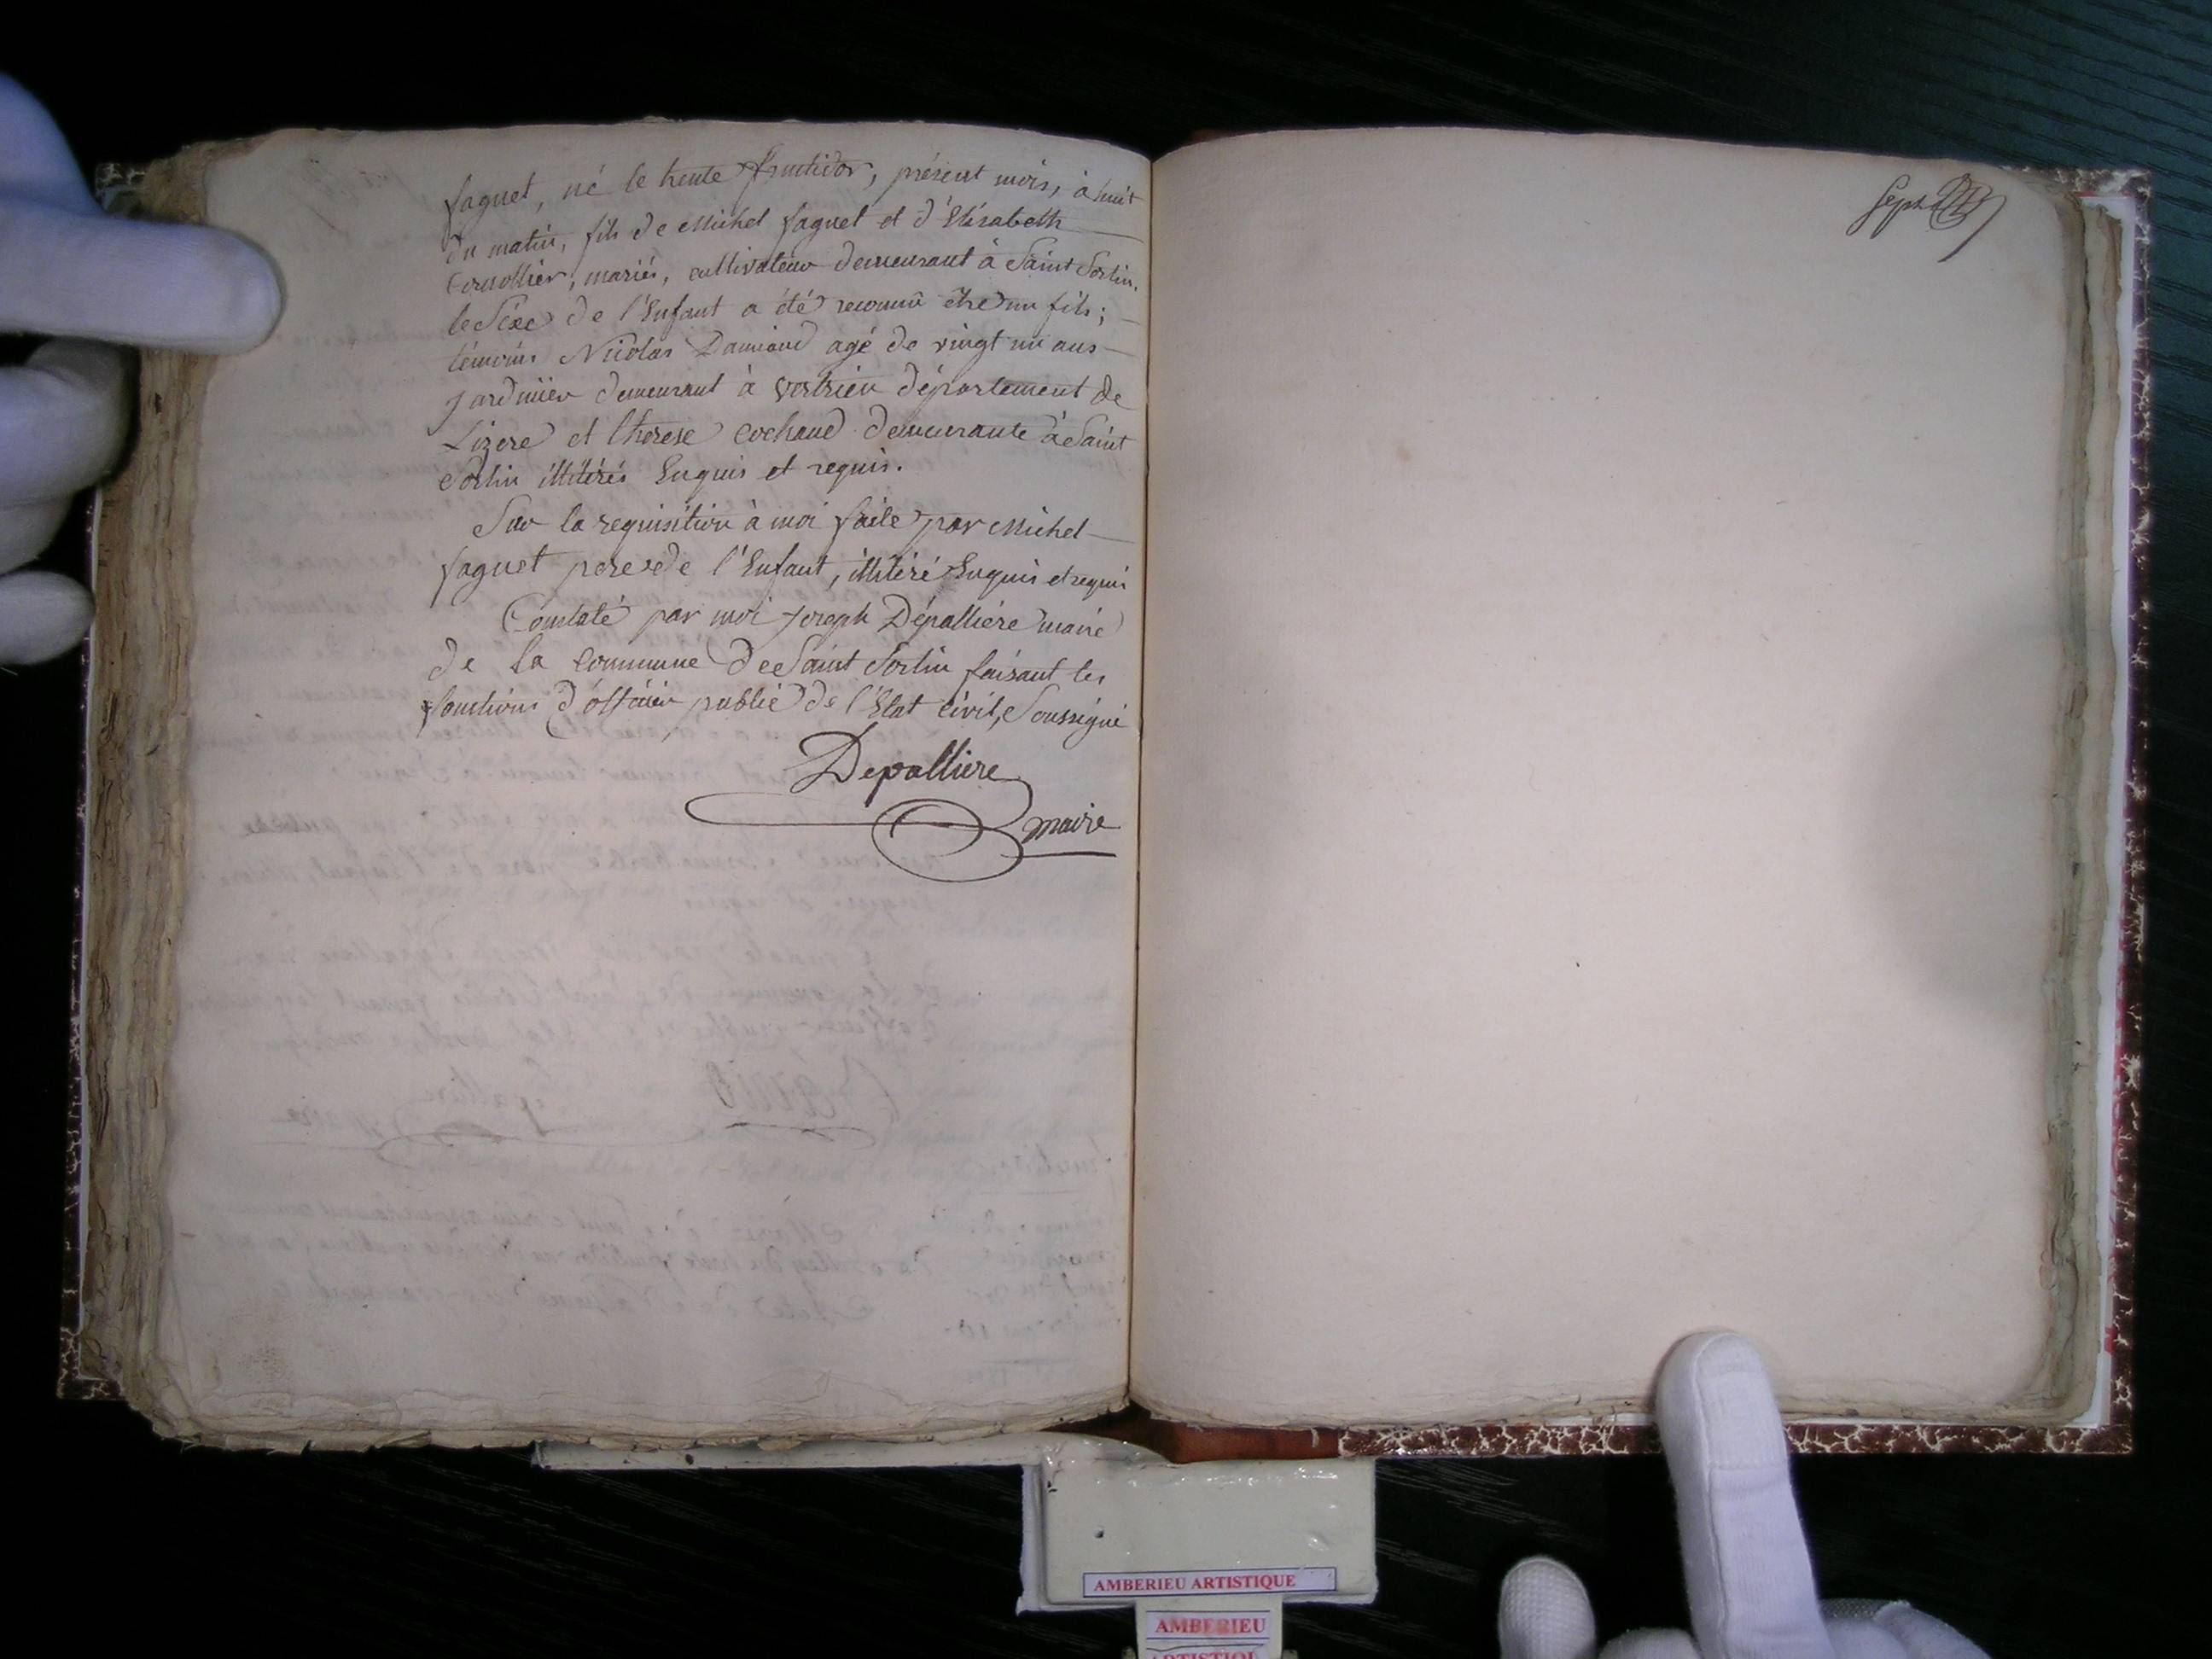 faguet, né le trente fructidor, présent mois, à huit
du matin, fils de Michel faguet et d'Elisabeth
mariés, cultivateur demeurant à Saint Sorlin.
le Sexe de l'Enfant a été reconnu être un fils;
témoins Nicolas Damiand agé de vingt un ans
jardinier demeurant à vertrieu département de
Lizere et therese cochand demeurante à Saint
Sorlin illitérés Enquis et requis.
Sur la requisition à moi faite par Michel
faguet pere de l'Enfant, illitéré Enquis et requis
Constaté par moi joseph Dépalliére maire
de la commune de Saint Sorlin faisant les
fonctions d'officier public de l'Etat civil, Soussigné
Depalliere
maire
AMBERIEU ARTISTIQUE
AMBERIEU
ARTISTIQUE